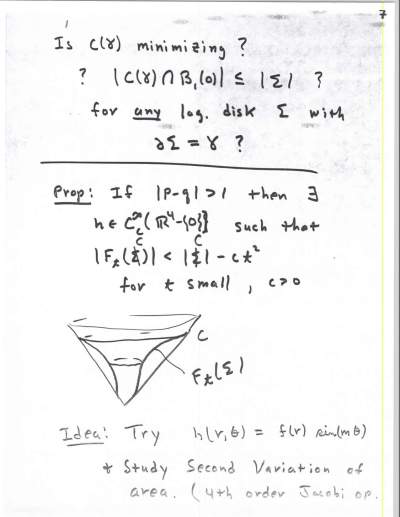 7
Is C(γ) minimizing ?
? |C(γ) ∩ B₁(0)| ≤ |Σ| ?
for any lag. disk Σ with
∂Σ = γ ?
Prop: If |p-q| > 1 then ∃
h ∈ C_c^∞(ℝ⁴-{0}) such that
|F_t(C)| < |C| - ct²
for t small, c>0
C
F_t(Σ)
Idea: Try h(r,θ) = f(r) sin(mθ)
* Study Second Variation of
area. (4th order Jacobi op.